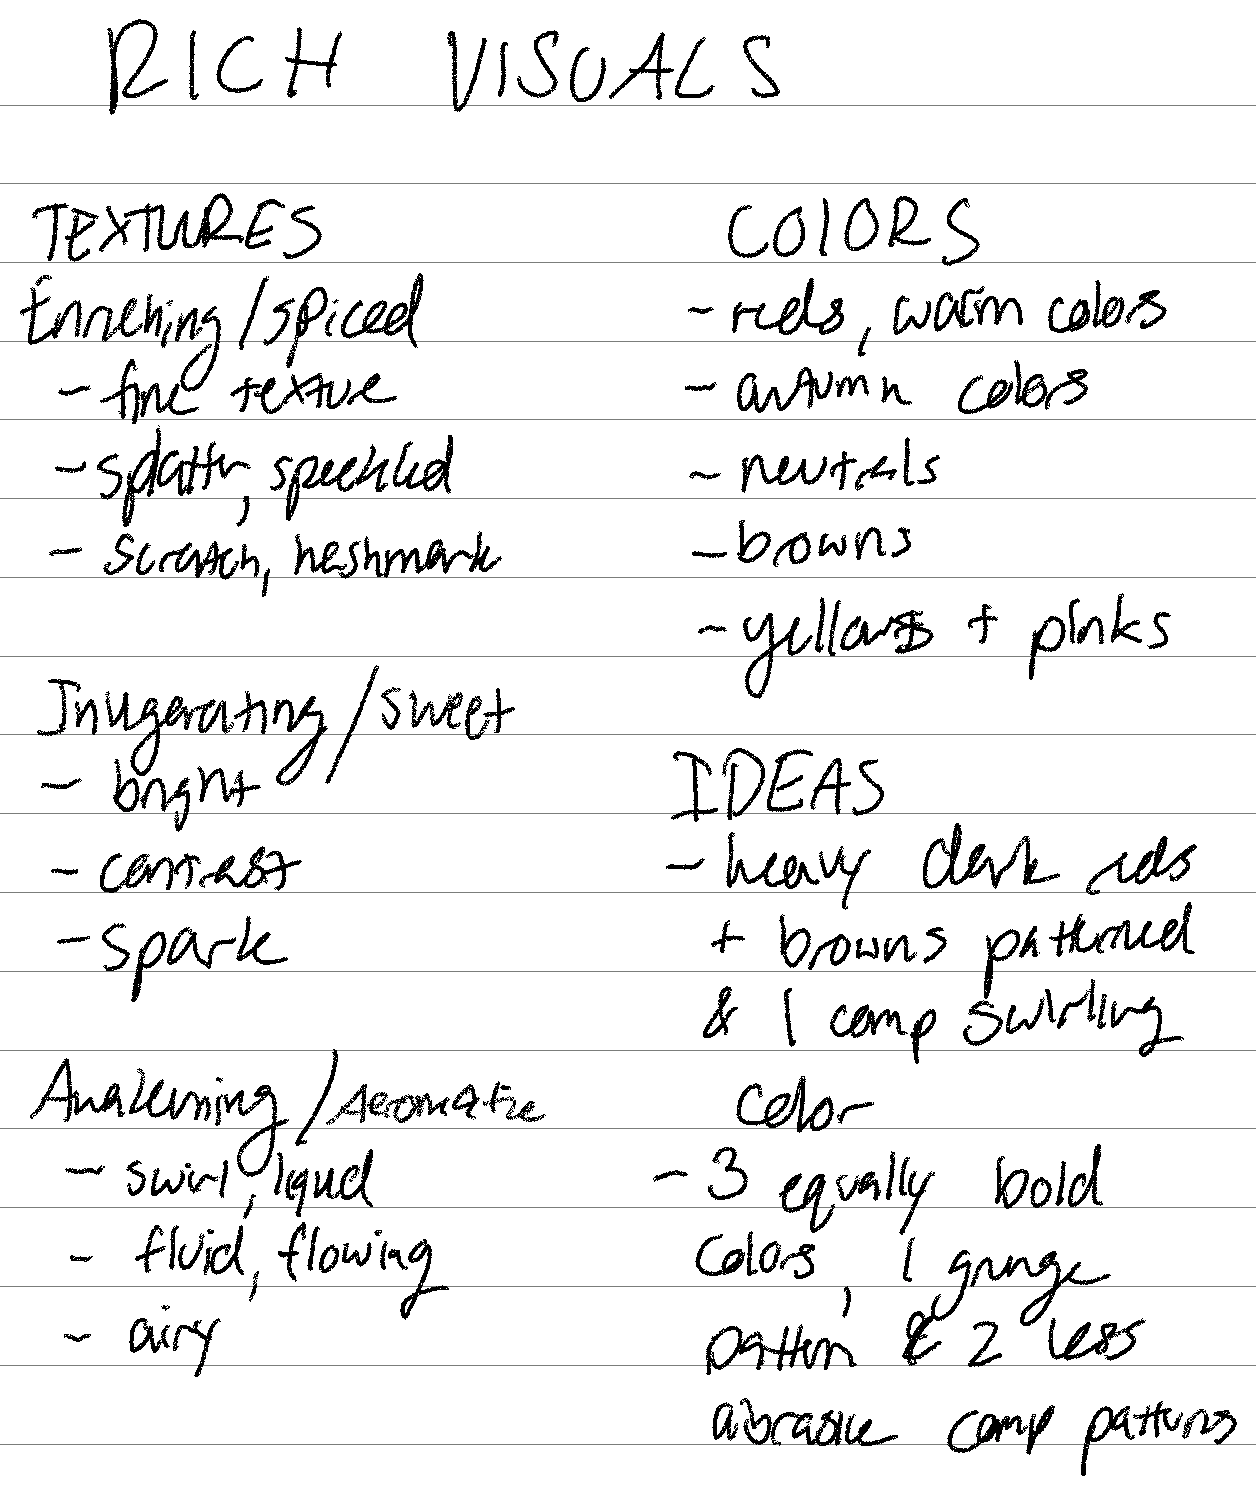 RICH VISUALS
TEXTURES
Enriching/spiced
- fine texture
- splatter, speckled
- scratch, heshmark
Invigerating/sweet
- bright
- contrast
- spark
Awakening/Aeromatic
- swirl, liquid
- fluid, flowing
- airy
COLORS
- reds, warm colors
- autumn colors
- neutrals
- browns
- yellows + pinks
IDEAS
- heavy dark reds
+ browns patterned
& 1 comp swirling
color
- 3 equally bold
colors, 1 grunge
pattern & 2 less
abrasive comp patterns